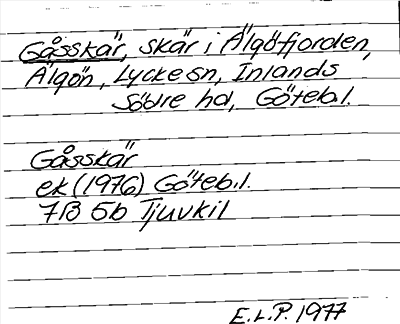 Gåsskär, skär i Älgöfjorden,
Älgön, Lycke sn, Inlands
Södre hd, Götebl.
Gåsskär
ek (1976) Göteb.l.
7B 5b Tjuvkil
E.L.P. 1977